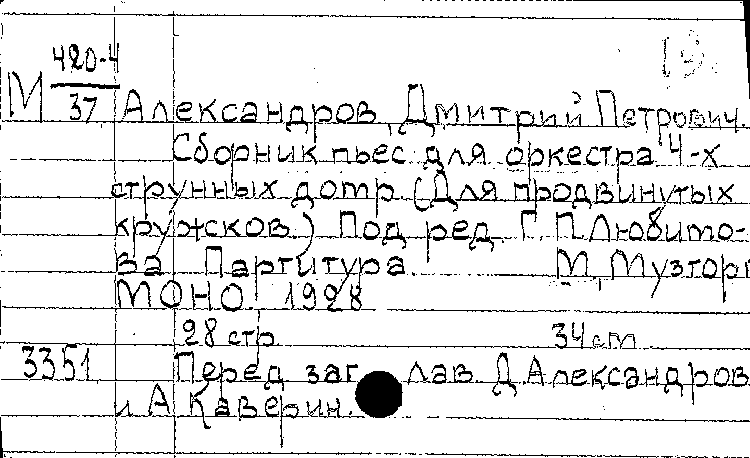 М 420-4
37
Александров, Дмитрий Петрович.
Сборник пьес для оркестра 4-х
струнных домр (Для продвинутых
кружсков.) Под ред. Г. П. Любимо-
ва Партитура. М, Музторг
МОНО. 1928
28 стр 34 см
3351 Перед заглав. Д. Александров
и А Каверин.